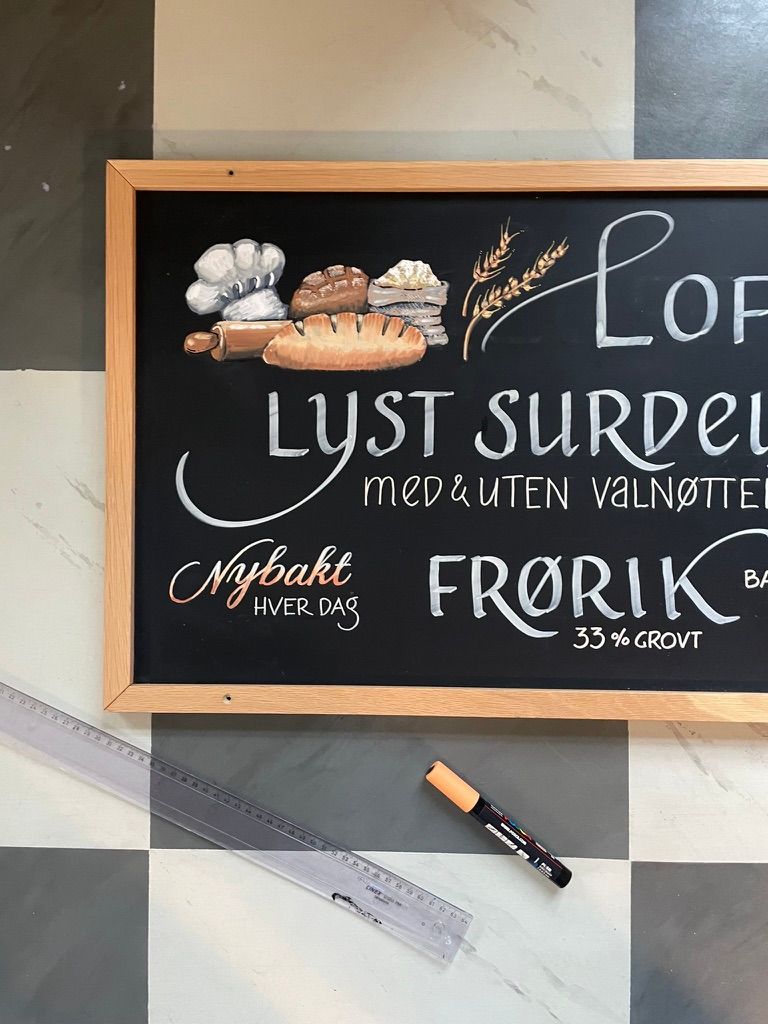 LOF
LYST SURDEI
MED & UTEN VALNØTTE
Nybakt
HVER DAG
FRØRIK
BA
33 % GROVT